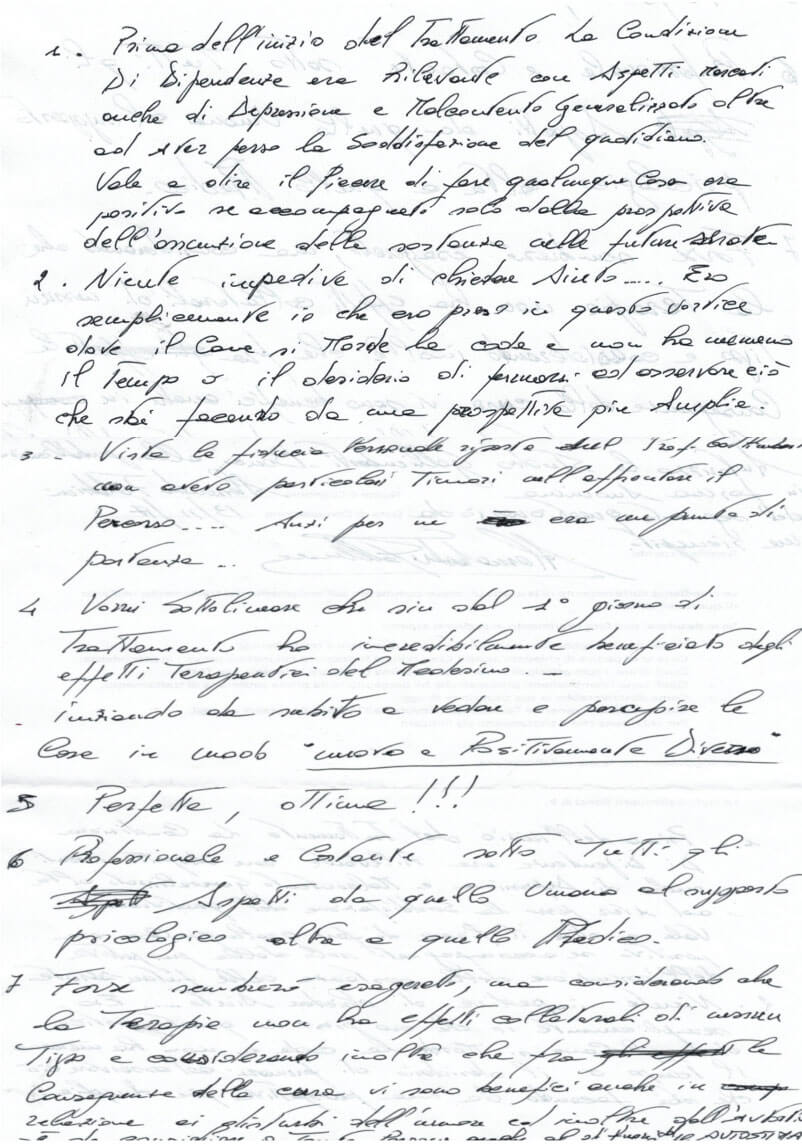 1. Prima dell'inizio del Trattamento la Condizione
Di Dipendenza era Rilevante con Aspetti Marcati
anche di Depressione e Malcontento Generalizzato oltre
ad aver perso la Soddisfazione del quotidiano.
Vale a dire il Piacere di fare qualunque Cosa era
positivo se accompagnata solo dalla prospettiva
dell'assunzione della sostanza nella futura serata
2. Niente impediva di chiedere Aiuto..... Ero
semplicemente io che ero preso in questo vortice
dove il Cane si Morde la coda e non ha nemmeno
il Tempo o il desiderio di fermarsi ad osservare ciò
che stai facendo da una prospettiva più Amplia.
3- Vista la fiducia Personale riposta nel Prof.
non avevo particolari Timori nell'affrontare il
Percorso.... Anzi per me era un punto di
partenza..
4 Vorrei Sottolineare che sin dal 1° giorno di
Trattamento ho incredibilmente beneficiato degli
effetti Terapeutici del Medesimo. -
iniziando da subito a vedere e percepire le
Cose in modo "nuovo e Positivamente Diverso"
5 Perfetta, ottima!!!
6 Professionale e Costante sotto Tutti gli
Aspetti da quello Umano al supporto
psicologico oltre a quello Medico.
7 Forse sembrerò esagerato, ma considerando che
la Terapia non ha effetti collaterali di nessun
Tipo e considerando inoltre che fra le
Conseguenze della cura vi sono benefici anche in
relazione ai disturbi dell'umore ed inoltre dell'